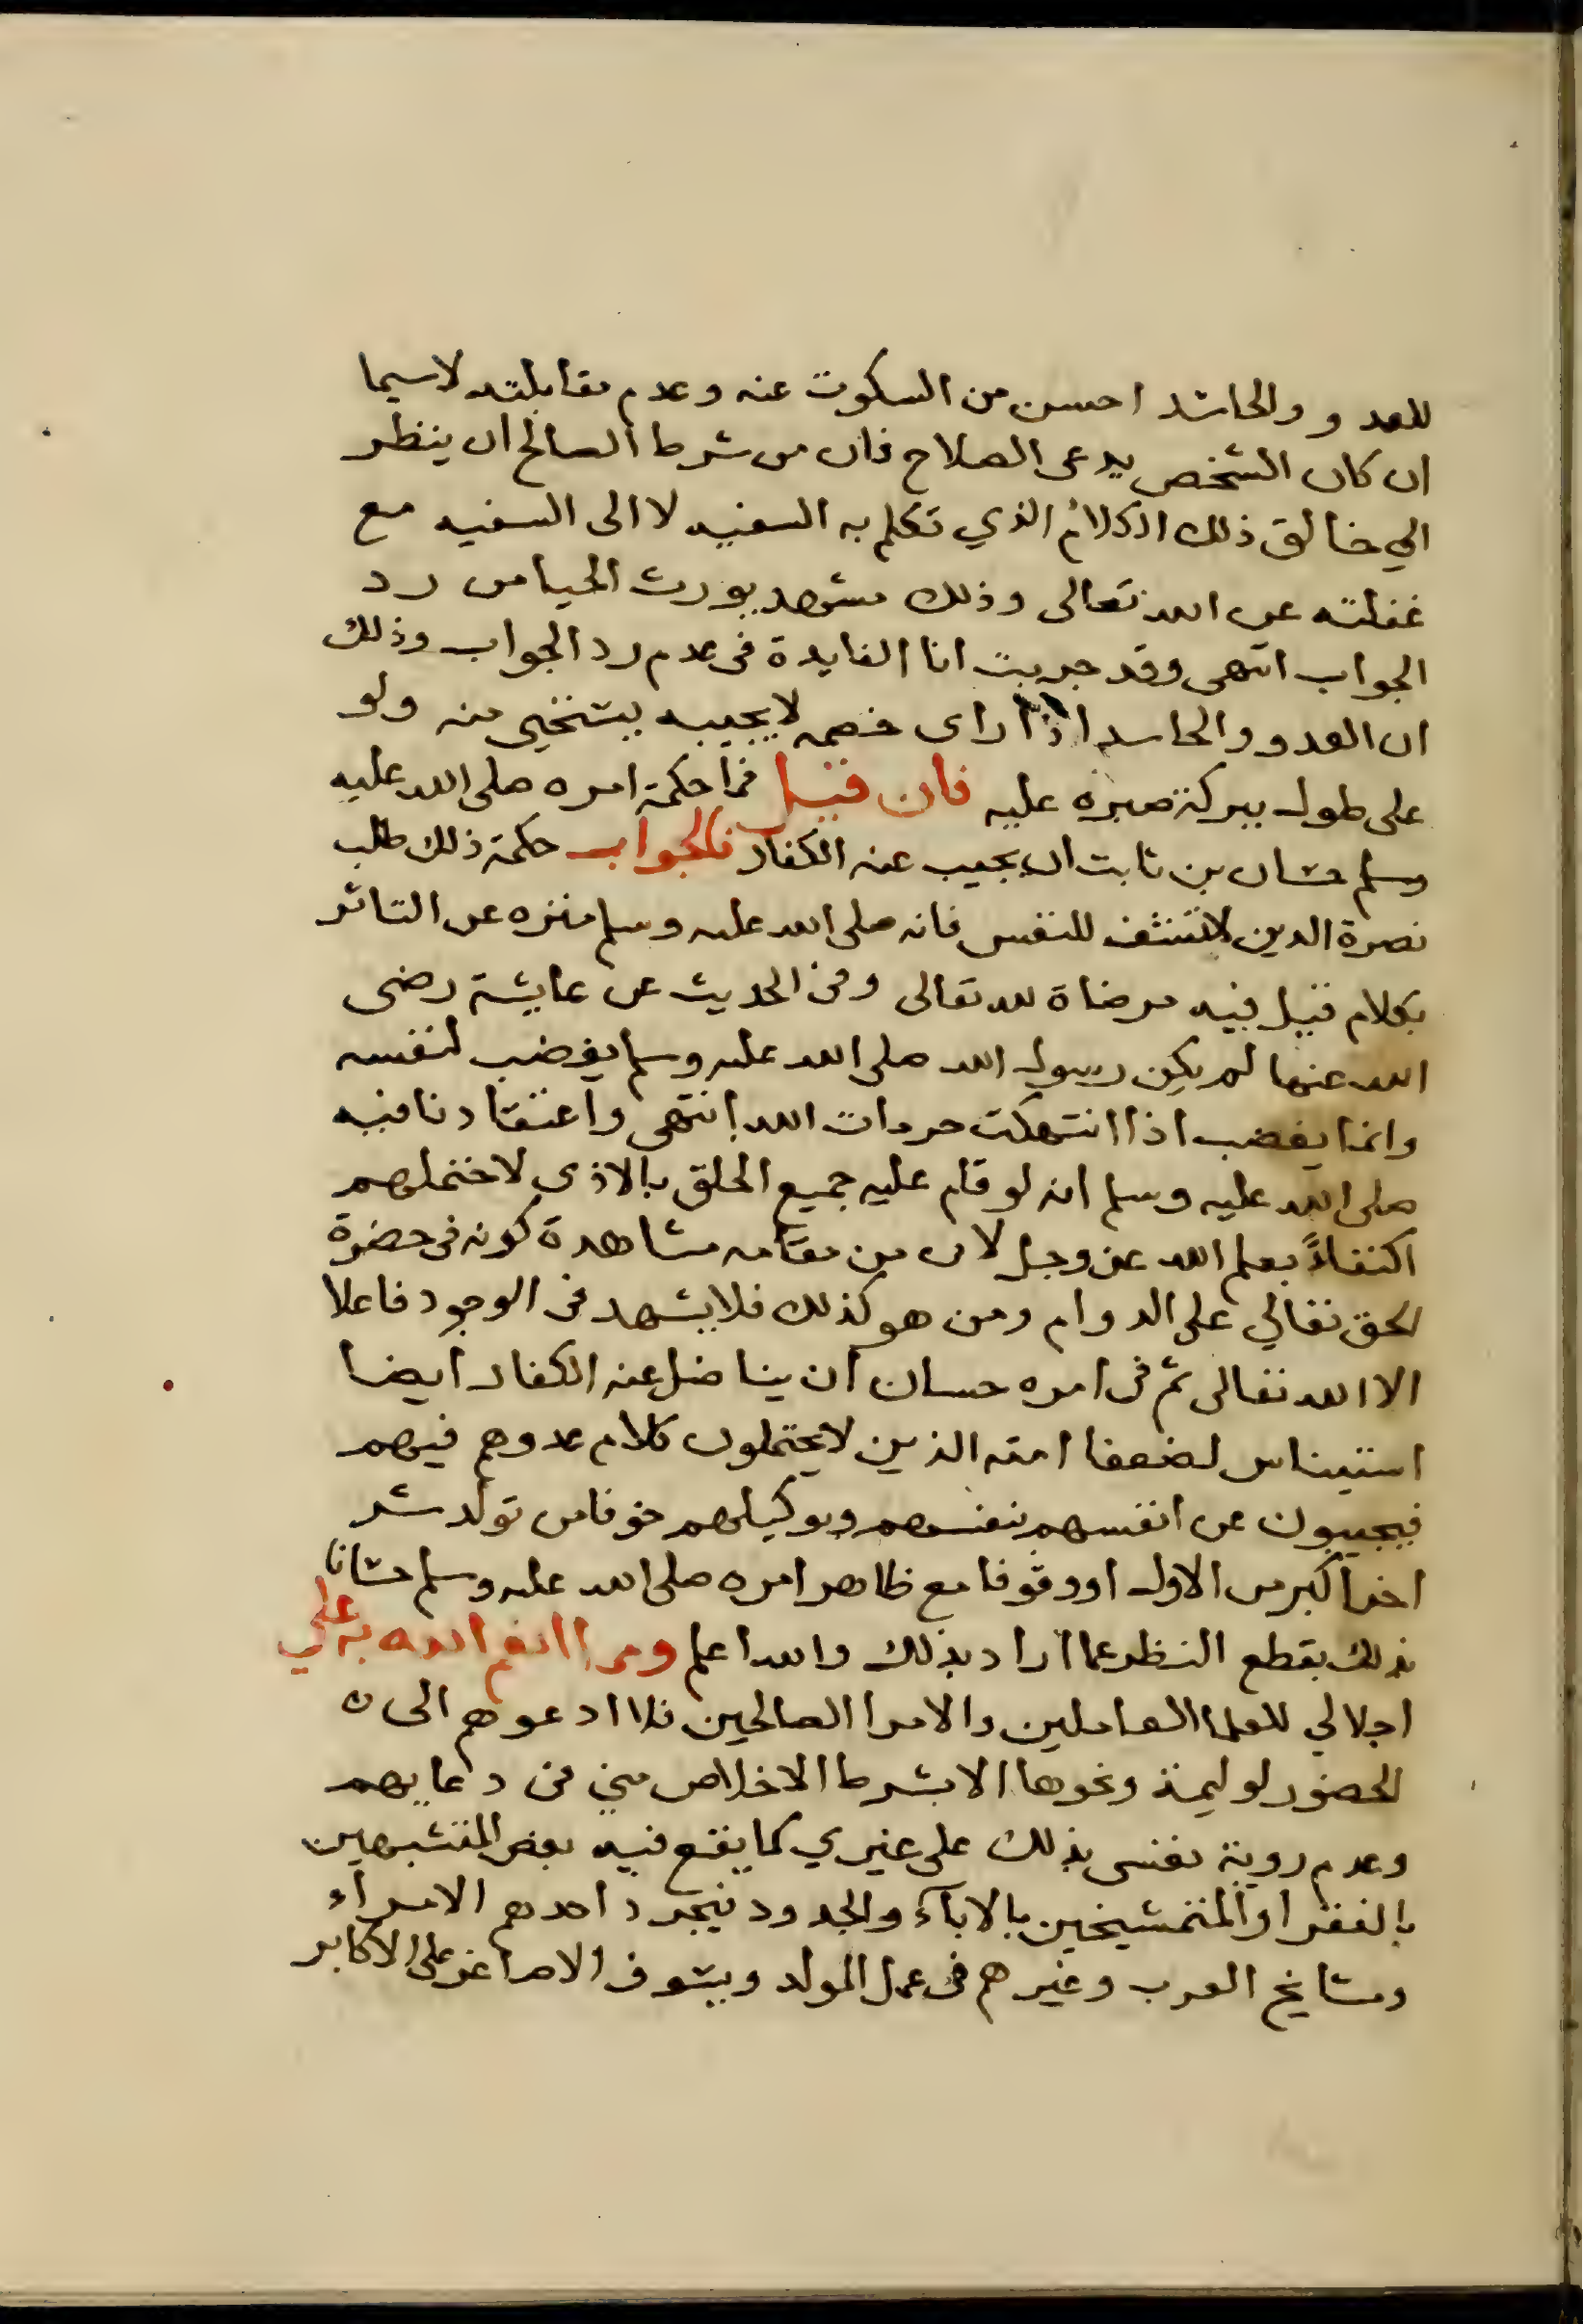 للعدو والحاسد احسن من السكوت عنه وعدم مقابلته لاسيما
ان كان الشخص يدعى الصلاح فان من شرط الصالح ان ينظر
الي خالق ذلك الكلام الذي تكلم به السفيه لا الى السفيه مع
غفلته عن الله تعالى وذلك مشهد يورث الحيا من رد
الجواب انتهى وقد جربت انا الفايدة فى عدم رد الجواب وذلك
ان العدو والحاسد اذا راى خصمه لا يجيبه يستحي منه ولو
على طول ببركة صبره عليه فان قيل فما حكمة امره صلى الله عليه
وسلم حسان بن ثابت ان يجيب عنه الكفار فالجواب حكمة ذلك طلب
نصرة الدين لا للنفس فانه صلى الله عليه وسلم منزه عن التاثر
بكلام قيل فيه مرضاة لله تعالى وفى الحديث عن عايشة رضى
الله عنها لم يكن رسول الله صلى الله عليه وسلم يغضب لنفسه
وانما يغضب اذا انتهكت حرمات الله انتهى واعتقادنا فيه
صلى الله عليه وسلم انه لو قام عليه جميع الخلق بالاذى لاحتملهم
اكتفاءً بعلم الله عز وجل لان من مقامه مشاهدة كونه فى حضرة
الحق تعالي على الدوام ومن هو كذلك فلا يشهد فى الوجود فاعلا
الا الله تعالى ثم فى امره حسان ان يناضل عنه الكفار ايضا
استيناس لضعفا امته الذين لا يحتملون كلام عدوهم فيهم
فيجيبون عن انفسهم بنفسهم وبوكيلهم خوفا من تولد شر
اخر اكبر من الاول او وقوفا مع ظاهر امره صلى الله عليه وسلم حسانا
بذلك بقطع النظر عما اراد بذلك والله اعلم ومما انعم الله به علي
اجلالي للعلما العاملين والامرا الصالحين فلا ادعوهم الى
الحضور لوليمة ونحوها الا بشرط الاخلاص مني فى دعايهم
وعدم روية نفسى بذلك على غيري كما يقع فيه بعض المتشبهين
بالفقرا والمتمشيخين بالاباء والجدود فيجرد احدهم الامراء
ومشايخ العرب وغيرهم فى عمل المولد على الاكابر